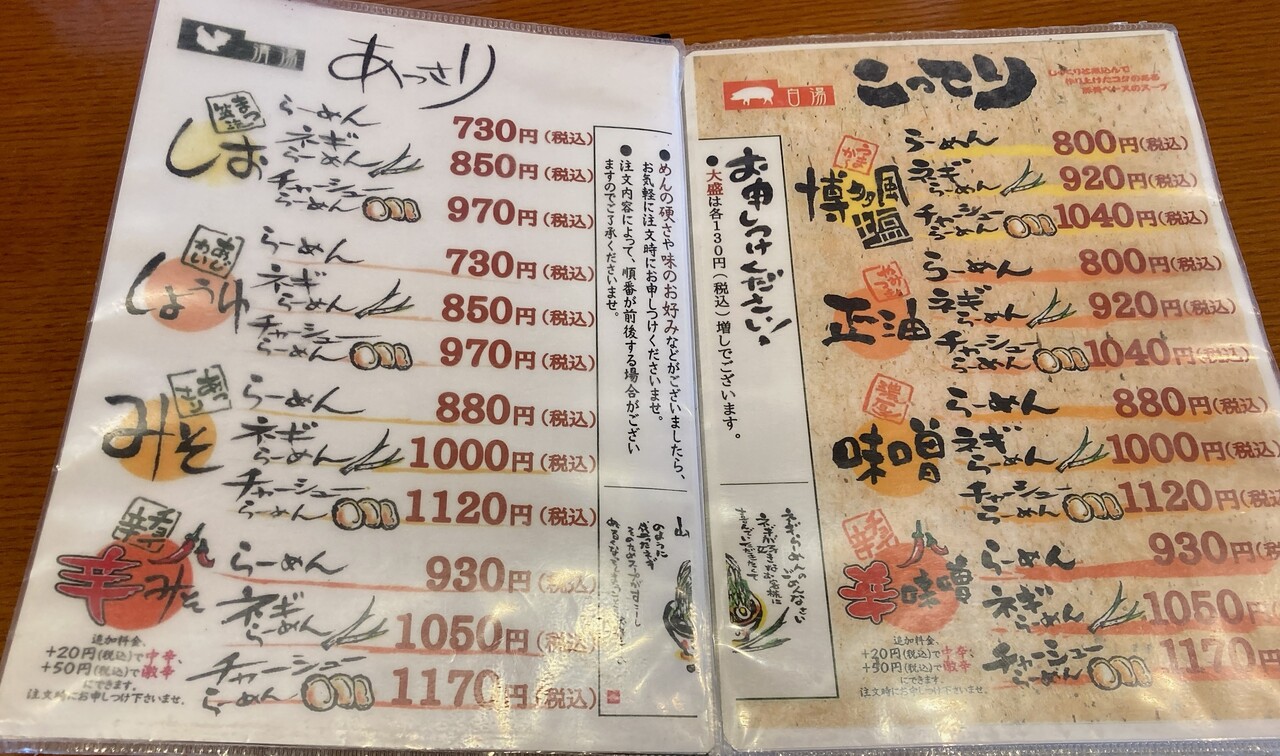 清湯
あっさり
しお
らーめん 730円(税込)
ネギらーめん 850円(税込)
チャーシューらーめん 970円(税込)
しょうゆ
らーめん 730円(税込)
ネギらーめん 850円(税込)
チャーシューらーめん 970円(税込)
みそ
らーめん 880円(税込)
ネギらーめん 1000円(税込)
チャーシューらーめん 1120円(税込)
辛みそ
らーめん 930円(税込)
ネギらーめん 1050円(税込)
チャーシューらーめん 1170円(税込)
追加料金、
+20円(税込)で中辛、
+50円(税込)で激辛
にできます。
注文時にお申しつけ下さいませ。
●めんの硬さや味のお好みなどがございましたら、
お気軽に注文時にお申しつけくださいませ。
●注文内容によって、順番が前後する場合がござい
ますのでご了承くださいませ。
お申しつけください!
●大盛は各130円(税込)増しでございます。
白湯
こってり
博多風塩
らーめん 800円(税込)
ネギらーめん 920円(税込)
チャーシューらーめん 1040円(税込)
正油
らーめん 800円(税込)
ネギらーめん 920円(税込)
チャーシューらーめん 1040円(税込)
味噌
らーめん 880円(税込)
ネギらーめん 1000円(税込)
チャーシューらーめん 1120円(税込)
辛味噌
らーめん 930円(税
ネギらーめん 1050円(税込
チャーシューらーめん 1170円(税
追加料金、
+20円(税込)で中辛、
+50円(税込)で激辛
にできます。
注文時にお申しつけ下さいませ。